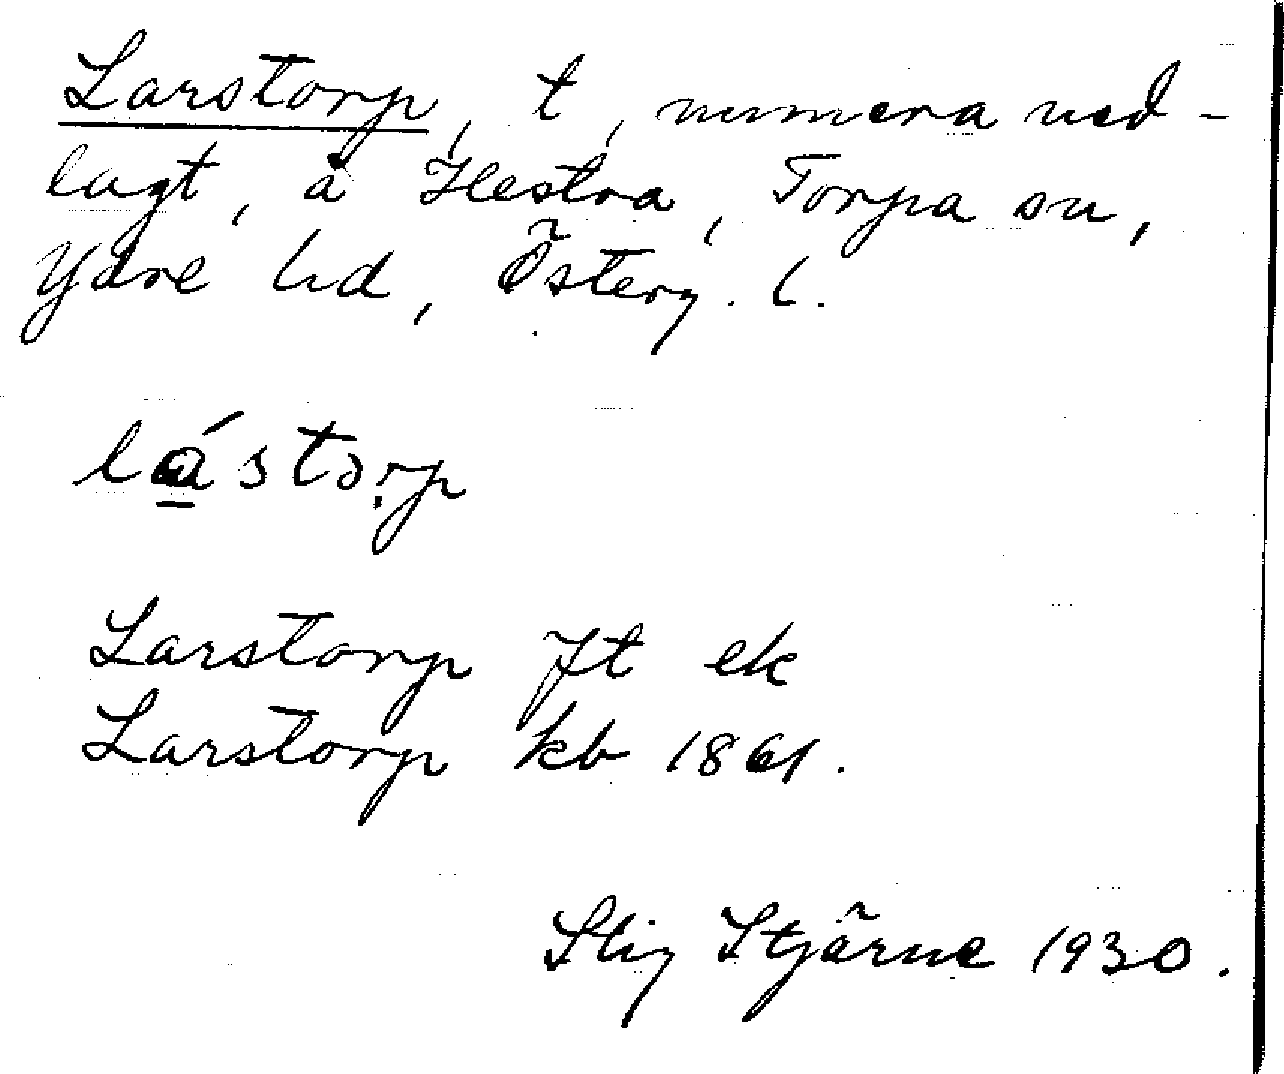 Larstorp, t, numera ned-
lagt, å Hestra, Torpa sn,
Ydre hd, Österg. l.
lástorp
Larstorp Jt ek
Larstorp kb 1861.
Stig Stjärne 1930.